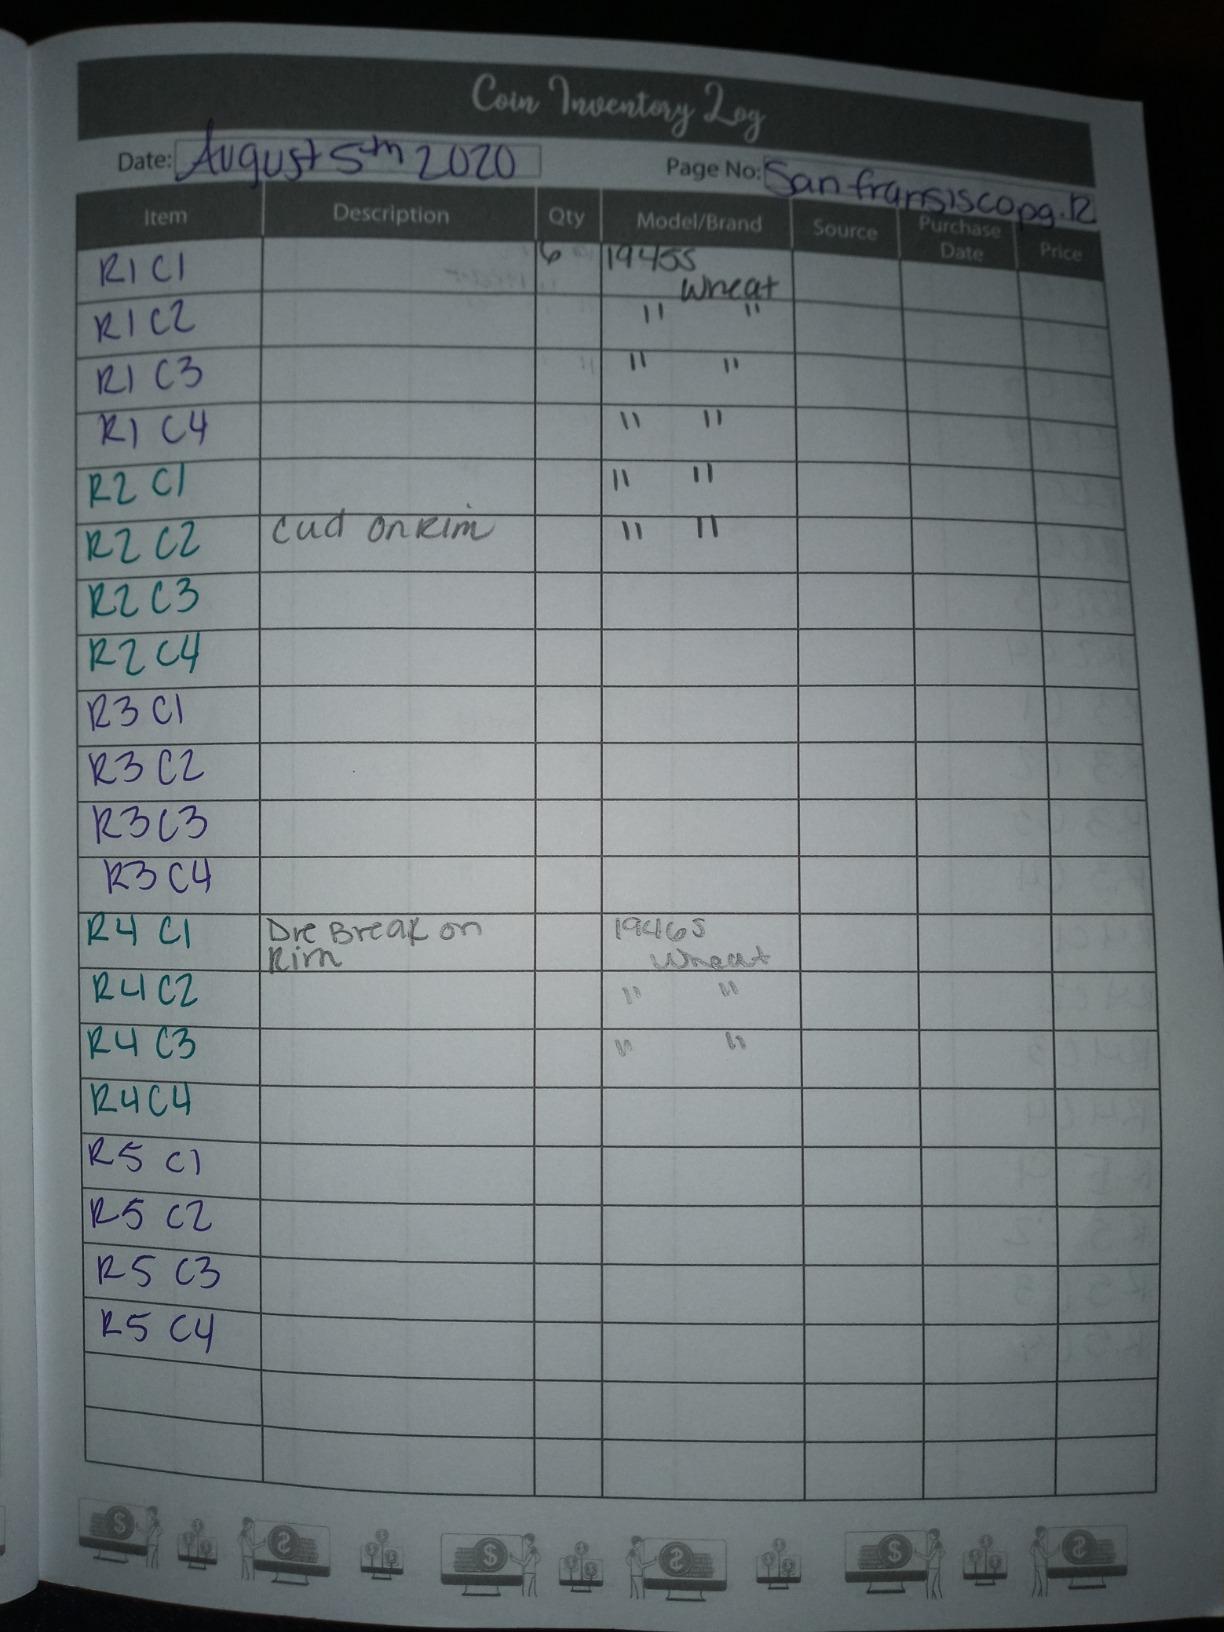 Coin Inventory Log
Date: August 5th 2020 Page No: San fransisco pg. 12
Item Description Qty Model/Brand Source Purchase Date Price
R1 C1 6 1945S Wheat
R1 C2 " "
R1 C3 " "
R1 C4 " "
R2 C1 " "
R2 C2 Cud on Rim " "
R2 C3
R2 C4
R3 C1
R3 C2
R3 C3
R3 C4
R4 C1 Die Break on Rim 1946S Wheat
R4 C2 " "
R4 C3 " "
R4 C4
R5 C1
R5 C2
R5 C3
R5 C4